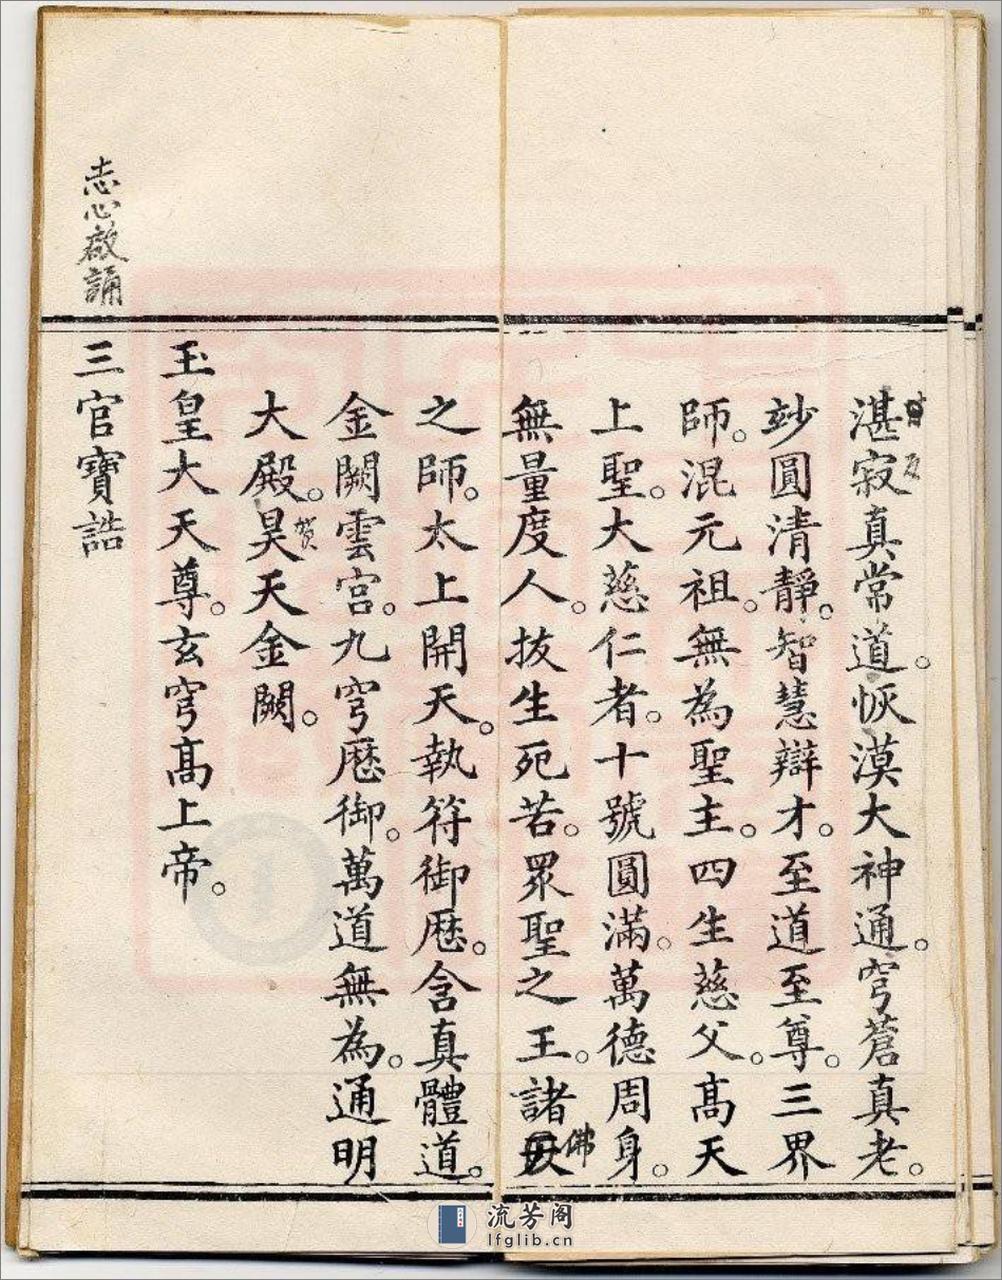 湛寂真常道。恢漠大神通。穹蒼真老。
玅圓清靜。智慧辯才。至道至尊。三界
師。混元祖。無為聖主。四生慈父。髙天
上聖。大慈仁者。十號圓滿。萬德周身。
無量度人。拔生死苦。眾聖之王。諸
佛
之師。太上開天。執符御歷。含真體道。
金闕雲宮。九穹歷御。萬道無為。通明
大殿。昊天金闕。
賀
玉皇大天尊。玄穹髙上帝。
志心啟誦
三官寶誥
流芳阁
lfglib.cn